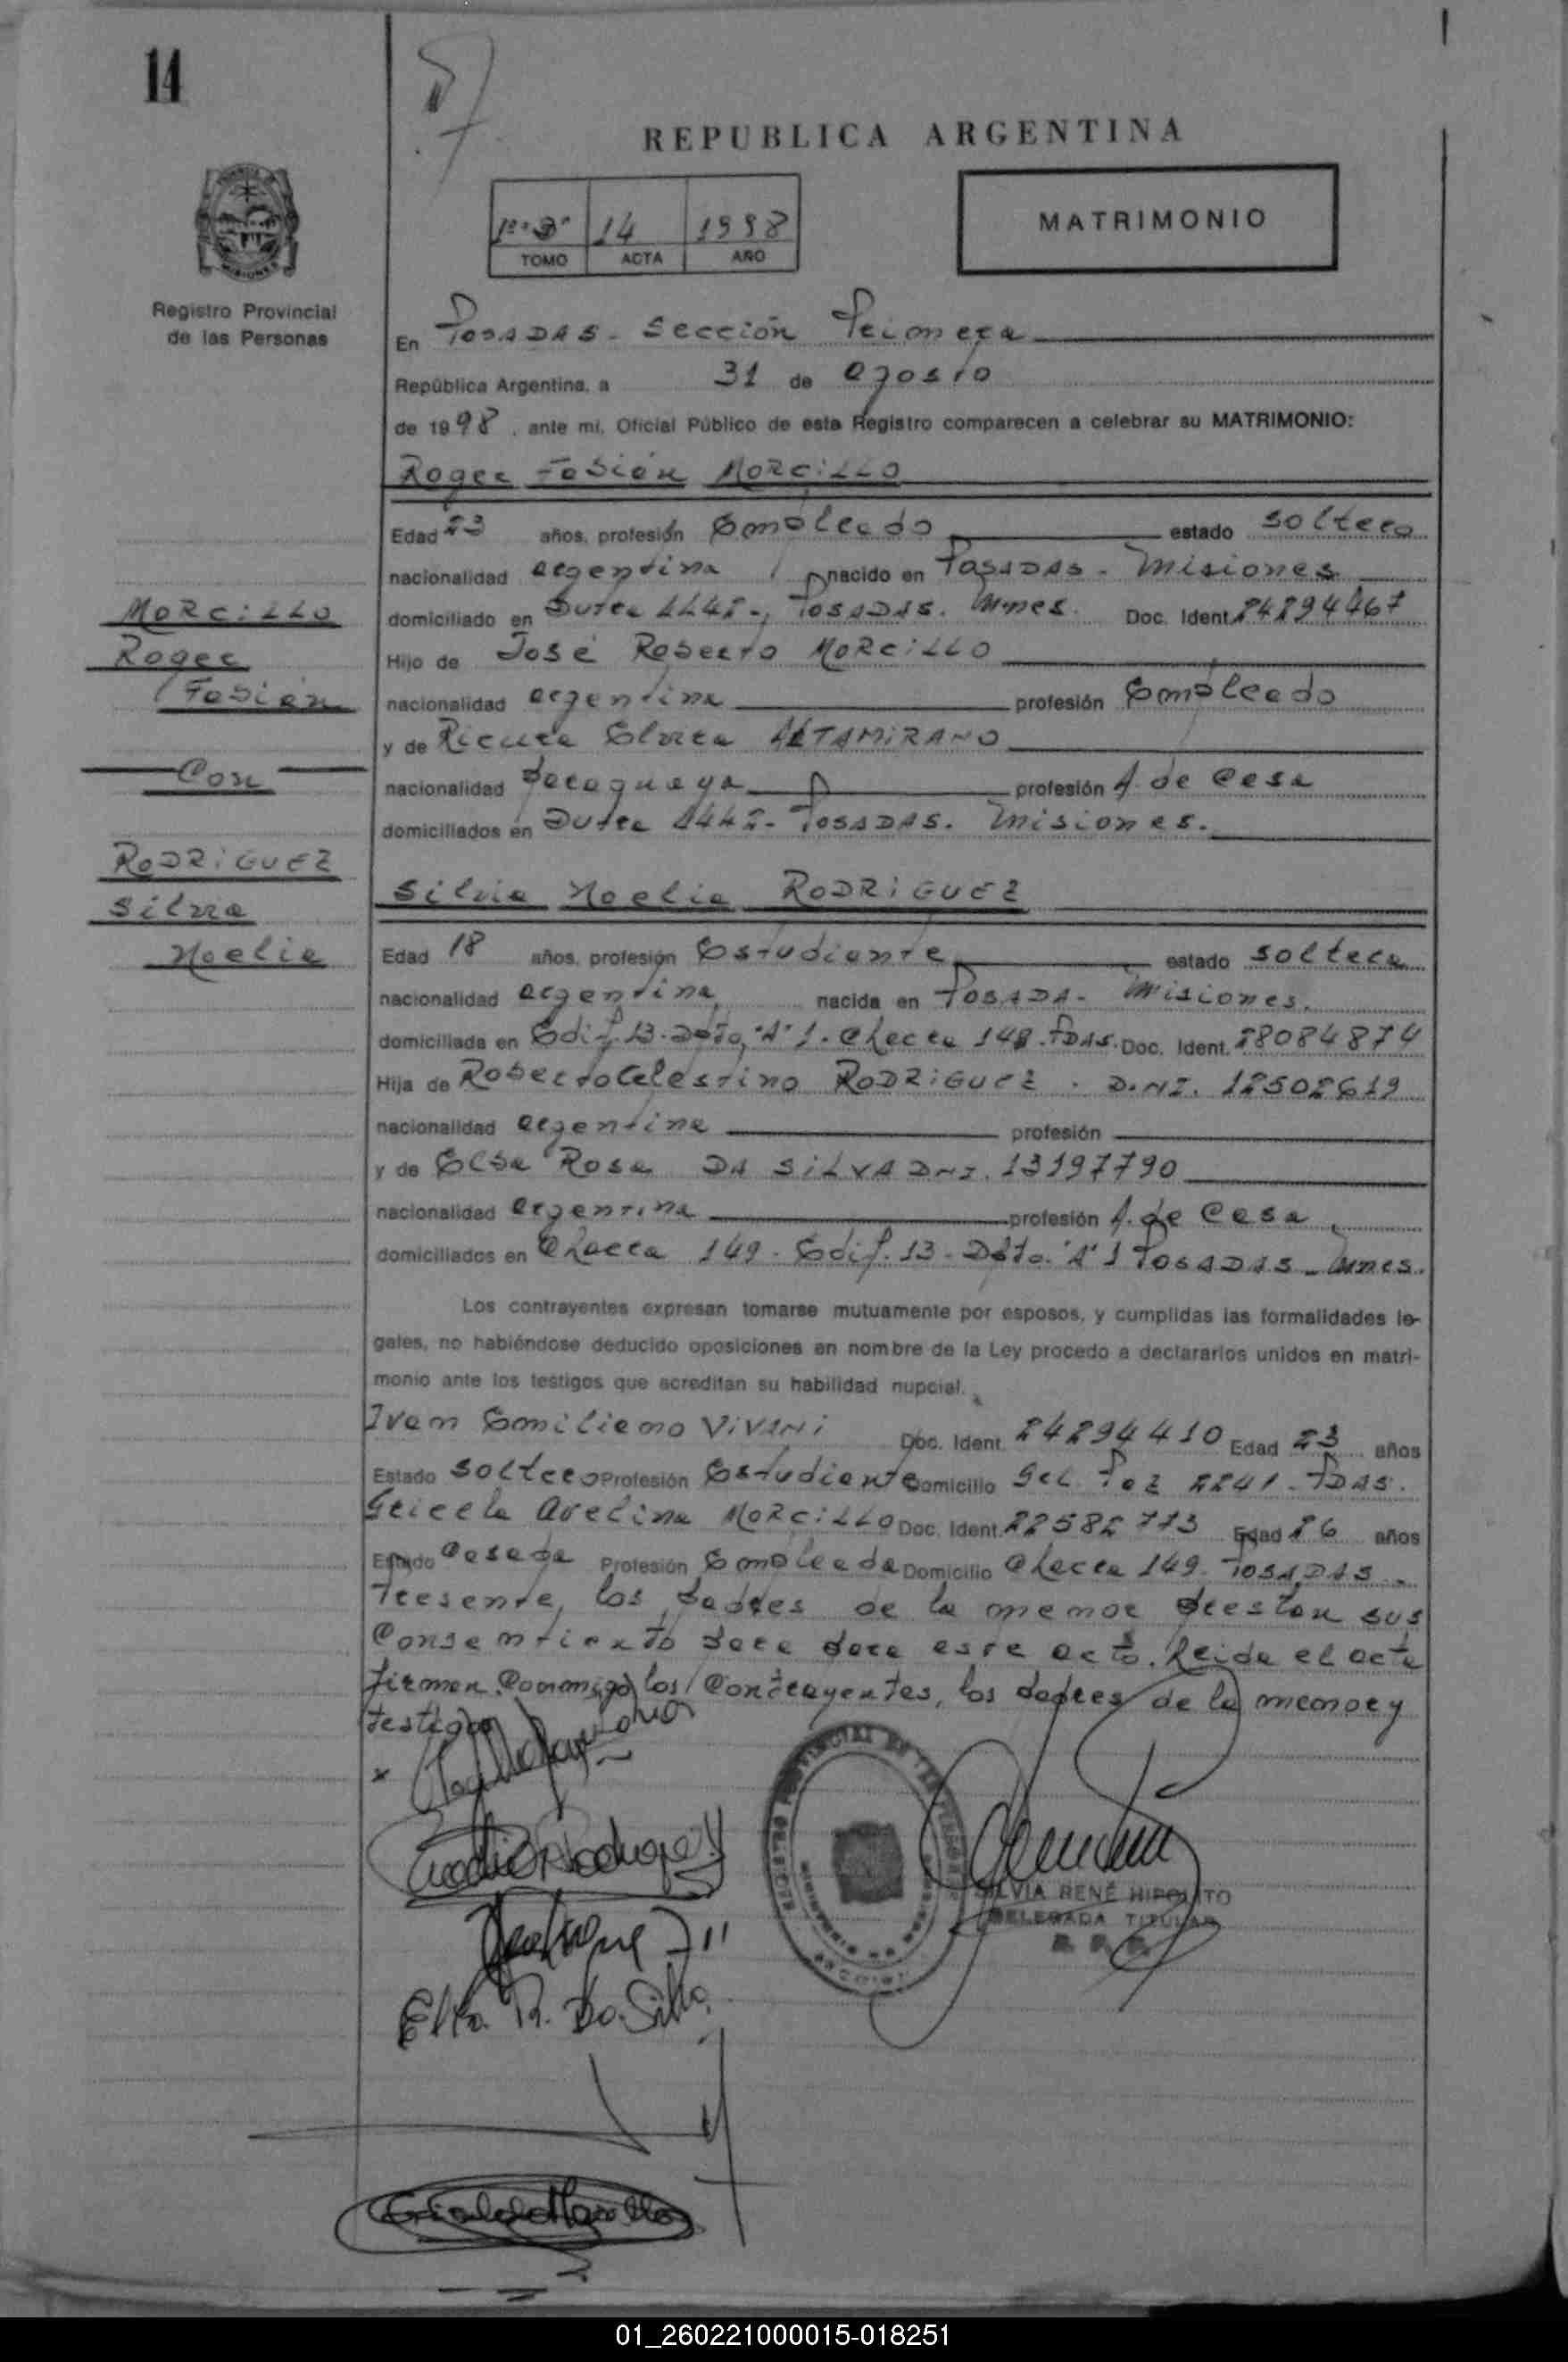 14
REPUBLICA ARGENTINA
14 1998
TOMO ACTA AÑO
MATRIMONIO
Registro Provincial
de las Personas
En POSADAS - Sección Primera
República Argentina, a 31 de agosto
de 1998, ante mí, Oficial Público de este Registro comparecen a celebrar su MATRIMONIO:
Roger Fabián MORCILLO
Edad 23 años, profesión Empleado estado soltero
nacionalidad argentina nacido en POSADAS - Misiones
domiciliado en 1442 -, POSADAS. Mnes. Doc. Ident. 24294467
Hijo de José Roberto MORCILLO
nacionalidad argentina profesión Empleado
y de Elvira ALTAMIRANO
nacionalidad paraguaya profesión A. de Casa
domiciliados en 1442 - POSADAS. Misiones.
MORCILLO
Roger
Fabián
Con
RODRIGUEZ
Silvia
Noelia
Silvia Noelia RODRIGUEZ
Edad 18 años, profesión Estudiante estado soltera
nacionalidad argentina nacida en POSADA - Misiones.
domiciliada en Edif. 13 - Dpto. "A" 1 - Chacra 149. PDAS. Doc. Ident. 28084874
Hija de Roberto Celestino RODRIGUEZ . D.N.I. 12502619
nacionalidad argentina profesión
y de Elsa Rosa DA SILVA DNI. 13197790
nacionalidad argentina profesión A. de Casa
domiciliados en Chacra 149 - Edif. 13 - Dpto. "A" 1 POSADAS - Mnes.
Los contrayentes expresan tomarse mutuamente por esposos, y cumplidas las formalidades le-
gales, no habiéndose deducido oposiciones en nombre de la Ley procedo a declararlos unidos en matri-
monio ante los testigos que acreditan su habilidad nupcial.
Ivan Emiliano VIVINI Doc. Ident. 24294410 Edad 23 años
Estado soltero Profesión Estudiante Domicilio Gel. Paz 2241 - PDAS.
Gricela Avelina MORCILLO Doc. Ident. 22582773 Edad 26 años
Estado Casada Profesión Empleada Domicilio Chacra 149 - POSADAS -
Presente, los padres de la menor prestan sus
Consentimiento para para este acto. Leida el acta
firman Conmigo los Contrayentes, los padres de la menor y
testigos
x
Elsa R. Da Silva
SILVIA RENÉ HIPOLITO
DELEGADA TITULAR
01_260221000015-018251